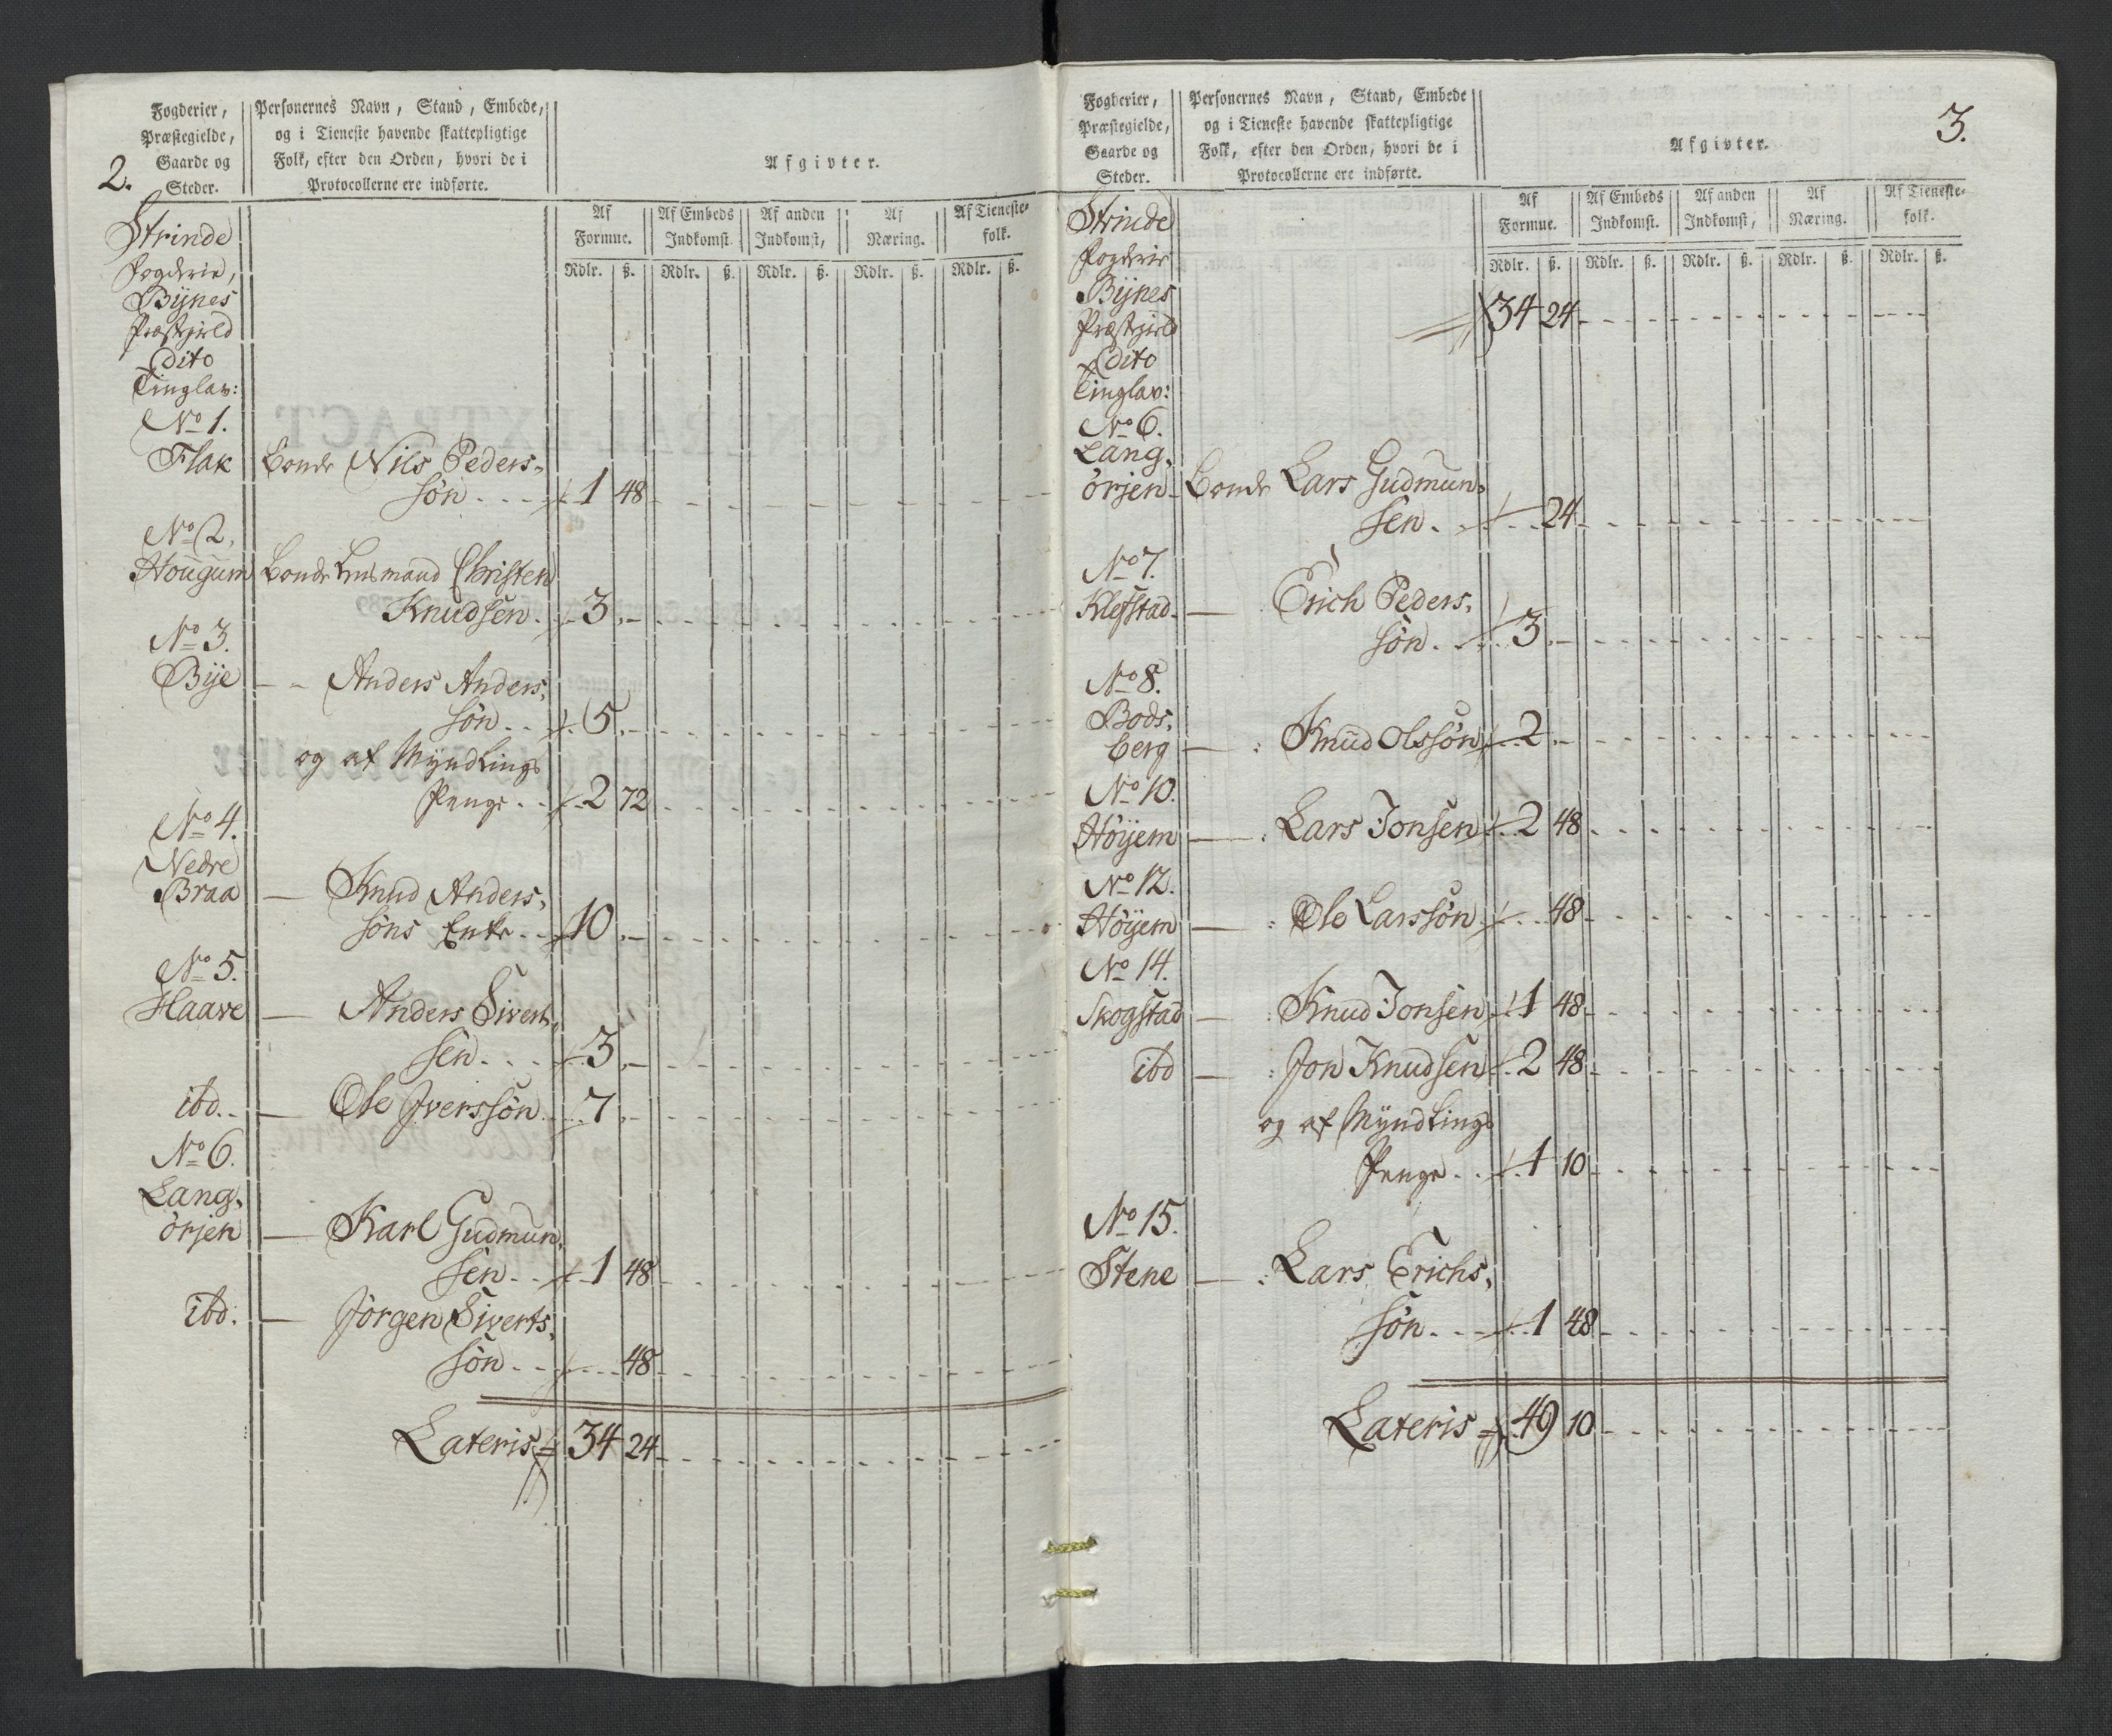 2.
Fogderier,
Præstegielde,
Gaarde og
Steder.
Personernes Navn, Stand, Embede,
og i Tieneste havende skattepligtige
Folk, efter den Orden, hvori de i
Protocollerne ere indførte.
Afgivter.
Af Formue.
Af Embeds Indkomst.
Af anden Indkomst,
Af Næring.
Af Tieneste-folk.
Rdlr. ß. Rdlr. ß. Rdlr. ß. Rdlr. ß. Rdlr. ß.
Strinde
Fogderie,
Bÿnes
Præstgield
Dito
Tinglav:
No 1.
Flak Bonde Nils Peders-
søn 1 48
No 2.
Hougum Bonde Lensmand Christen
Knudsen 3
No 3.
Bÿe Anders Anders,
søn 5
og af Mÿndlings
Penge 2 72
No 4.
Nedre
Braa Knud Anders,
søns Enke 10
No 5.
Haave Anders Sivert,
sen 3
ibd. Ole Iverssøn 7
No 6.
Lang,
örjen Karl Gudmun,
sen 1 48
ibd: Jörgen Siverts,
søn 48
Lateris 34 24
3.
Fogderier,
Præstegielde,
Gaarde og
Steder.
Personernes Navn, Stand, Embede
og i Tieneste havende skattepligtige
Folk, efter den Orden, hvori de i
Protocollerne ere indførte.
Afgivter.
Af Formue.
Af Embeds Indkomst.
Af anden Indkomst,
Af Næring.
Af Tieneste-folk.
Rdlr. ß. Rdlr. ß. Rdlr. ß. Rdlr. ß. Rdlr. ß.
Strinde
Fogderie
Bÿnes 34 24
Præstgield
Dito
Tinglav:
No 6.
Lang,
örjen Bonde Lars Gudmun,
sen 24
No 7.
Klefstad Erich Peders,
søn 3
No 8.
Bods,
berg Knud Olssøn 2
No 10.
Höÿem Lars Jonsen 2 48
No 12.
Höÿem Ole Larssøn 48
No 14.
Skogstad Knud Jonsen 1 48
ibd Jon Knudsen 2 48
og af Mÿndlings
Penge 1 10
No 15.
Stene Lars Erichs,
søn 1 48
Lateris 49 10